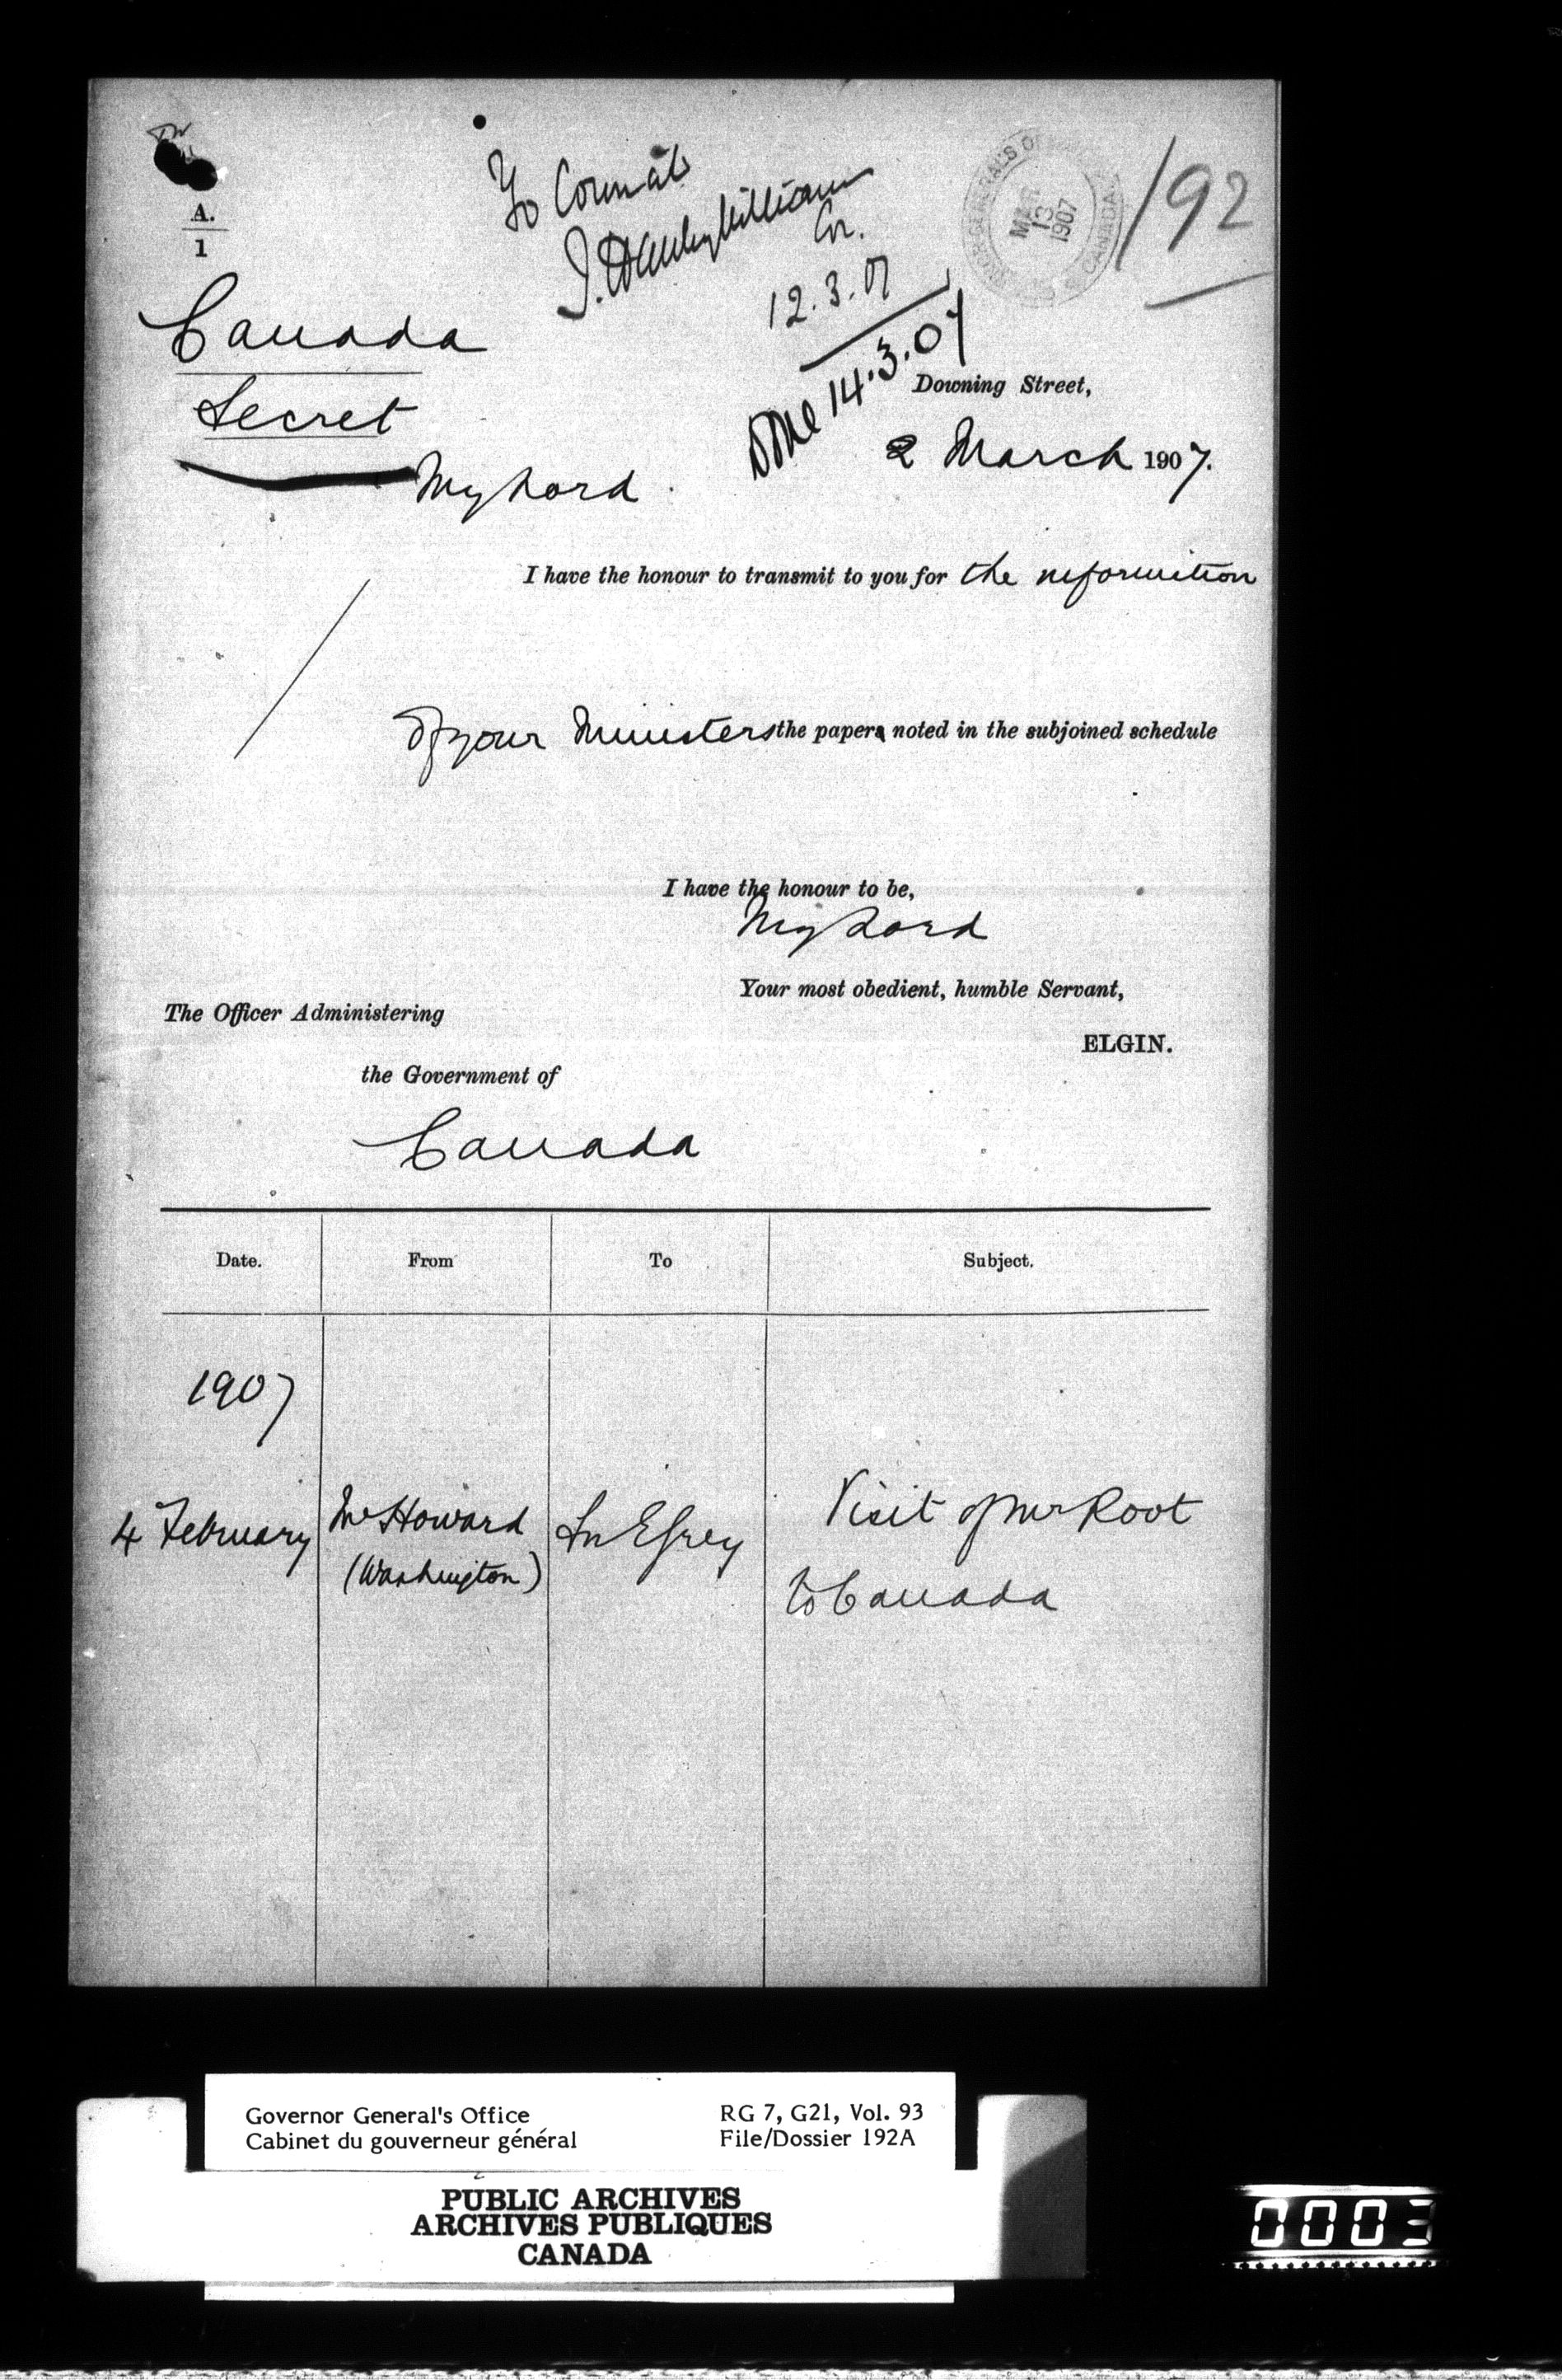 To Council
J. Hanbury Williams
Col.
12.3.07
Done 14.3.07
MAR
13
1907
CANADA
192
A.
1
Canada
Secret
Downing Street,
2 March 1907.
My Lord
I have the honour to transmit to you for the information
of your Ministers the papers noted in the subjoined schedule
I have the honour to be,
My Lord
Your most obedient, humble Servant,
ELGIN.
The Officer Administering
the Government of
Canada
Date. From To Subject.
1907
4 February Mr Howard Sir E Grey Visit of Mr Root
(Washington) to Canada
Governor General's Office RG 7, G21, Vol. 93
Cabinet du gouverneur général File/Dossier 192A
PUBLIC ARCHIVES
ARCHIVES PUBLIQUES
CANADA
0003